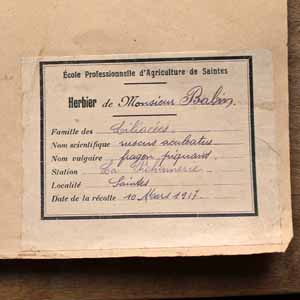 École Professionnelle d'Agriculture de Saintes
Herbier de Monsieur Babin
Famille des Liliacées.
Nom scientifique ruscus aculeatus
Nom vulgaire fragon piquant.
Station La
Localité Saintes
Date de la récolte 10 Mars 1917